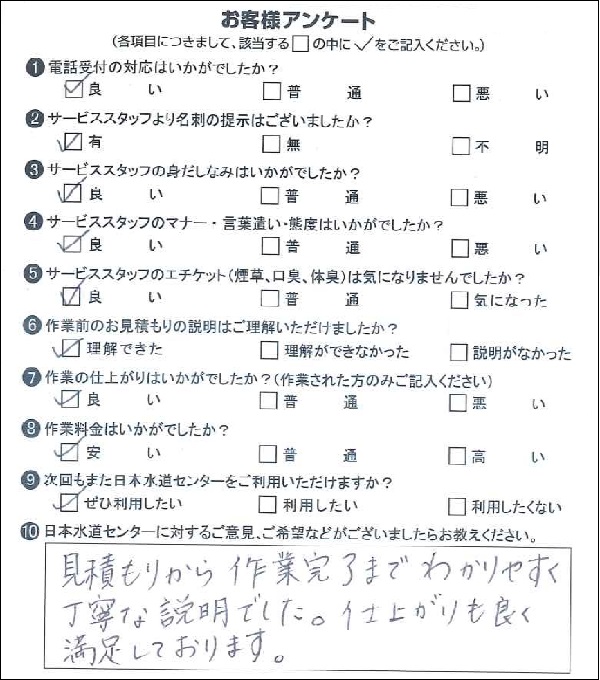 お客様アンケート
(各項目につきまして、該当する□の中に✓をご記入ください。)
❶ 電話受付の対応はいかがでしたか？
☑ 良い □ 普通 □ 悪い
❷ サービススタッフより名刺の提示はございましたか？
☑ 有 □ 無 □ 不明
❸ サービススタッフの身だしなみはいかがでしたか？
☑ 良い □ 普通 □ 悪い
❹ サービススタッフのマナー・言葉遣い・態度はいかがでしたか？
☑ 良い □ 普通 □ 悪い
❺ サービススタッフのエチケット(煙草、口臭、体臭)は気になりませんでしたか？
☑ 良い □ 普通 □ 気になった
❻ 作業前のお見積もりの説明はご理解いただけましたか？
☑ 理解できた □ 理解ができなかった □ 説明がなかった
❼ 作業の仕上がりはいかがでしたか？(作業された方のみご記入ください)
☑ 良い □ 普通 □ 悪い
❽ 作業料金はいかがでしたか？
☑ 安い □ 普通 □ 高い
❾ 次回もまた日本水道センターをご利用いただけますか？
☑ ぜひ利用したい □ 利用したい □ 利用したくない
❿ 日本水道センターに対するご意見、ご希望などがございましたらお教えください。
見積もりから作業完了までわかりやすく
丁寧な説明でした。仕上がりも良く
満足しております。